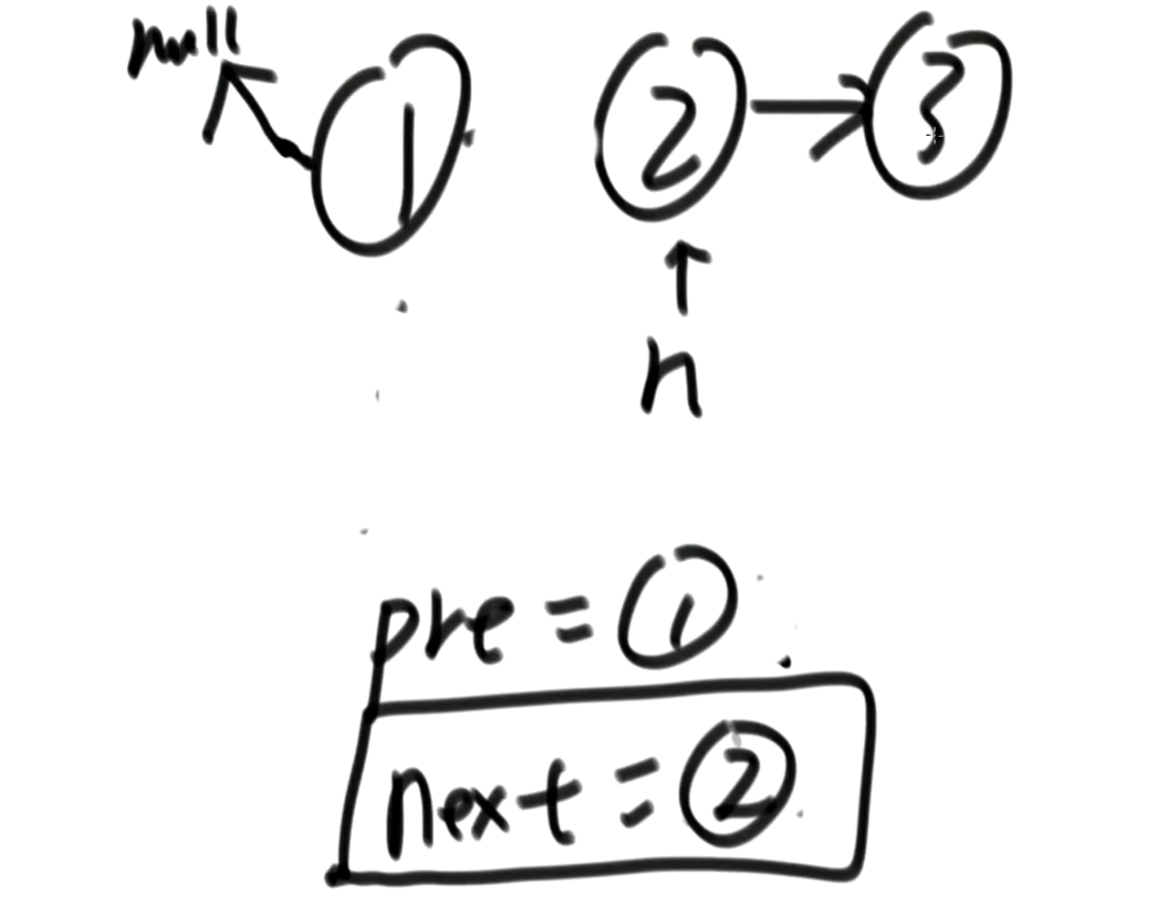 null
① ② → ③
↑
n
pre = ①
next = ②